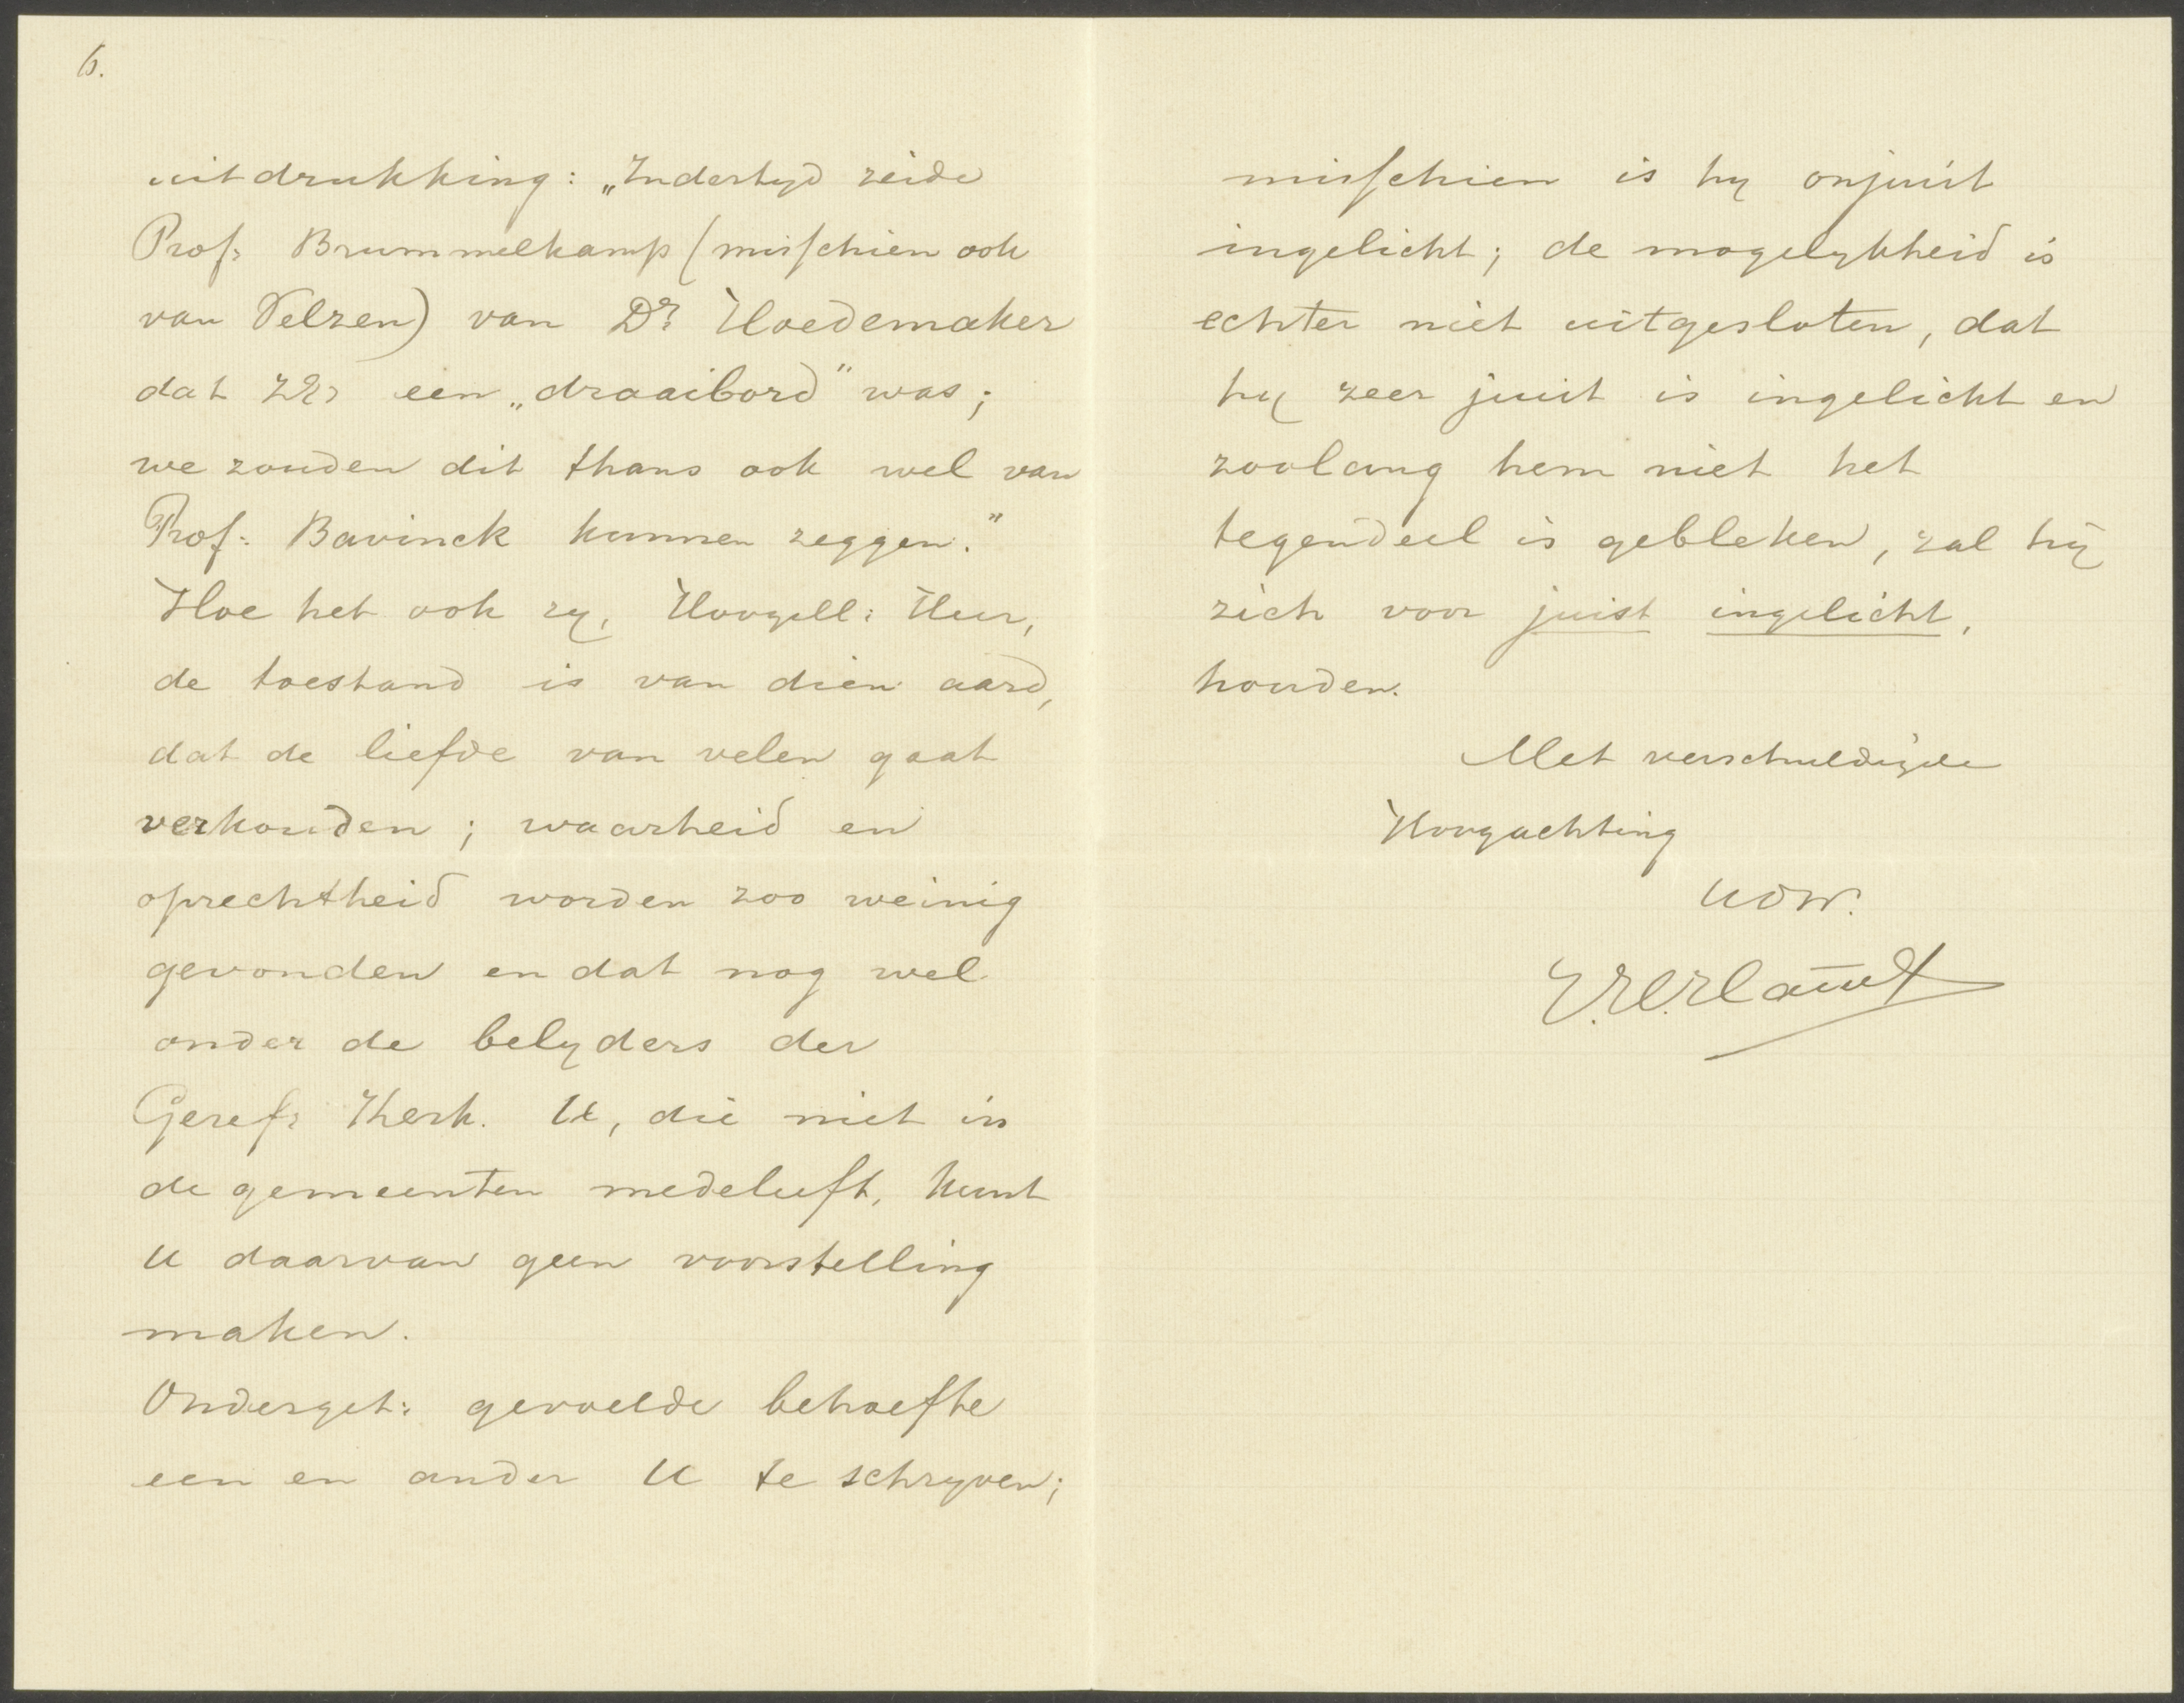 6.
uitdrukking: „Indertyd zeide
Prof: Brummelkamp (misschien ook
van Velzen) van Dr. Hoedemaker
dat ZEd een „draaibord" was;
we zouden dit thans ook wel van
Prof: Bavinck kunnen zeggen."
Hoe het ook zy, Hoogell: Heer,
de toestand is van dien aard,
dat de liefde van velen gaat
verkouden; waarheid en
oprechtheid worden zoo weinig
gevonden en dat nog wel
onder de belyders der
Geref: Kerk. U, die niet in
de gemeenten medeleeft, kunt
U daarvan geen voorstelling
maken.
Onderget: gevoelde behoefte
een en ander U te schryven;
misschien is hy onjuist
ingelicht; de mogelykheid is
echter niet uitgesloten, dat
hy zeer juist is ingelicht en
zoolang hem niet het
tegendeel is gebleken, zal hij
zich voor juist ingelicht,
houden.
Met verschuldigde
Hoogachting
UDW.